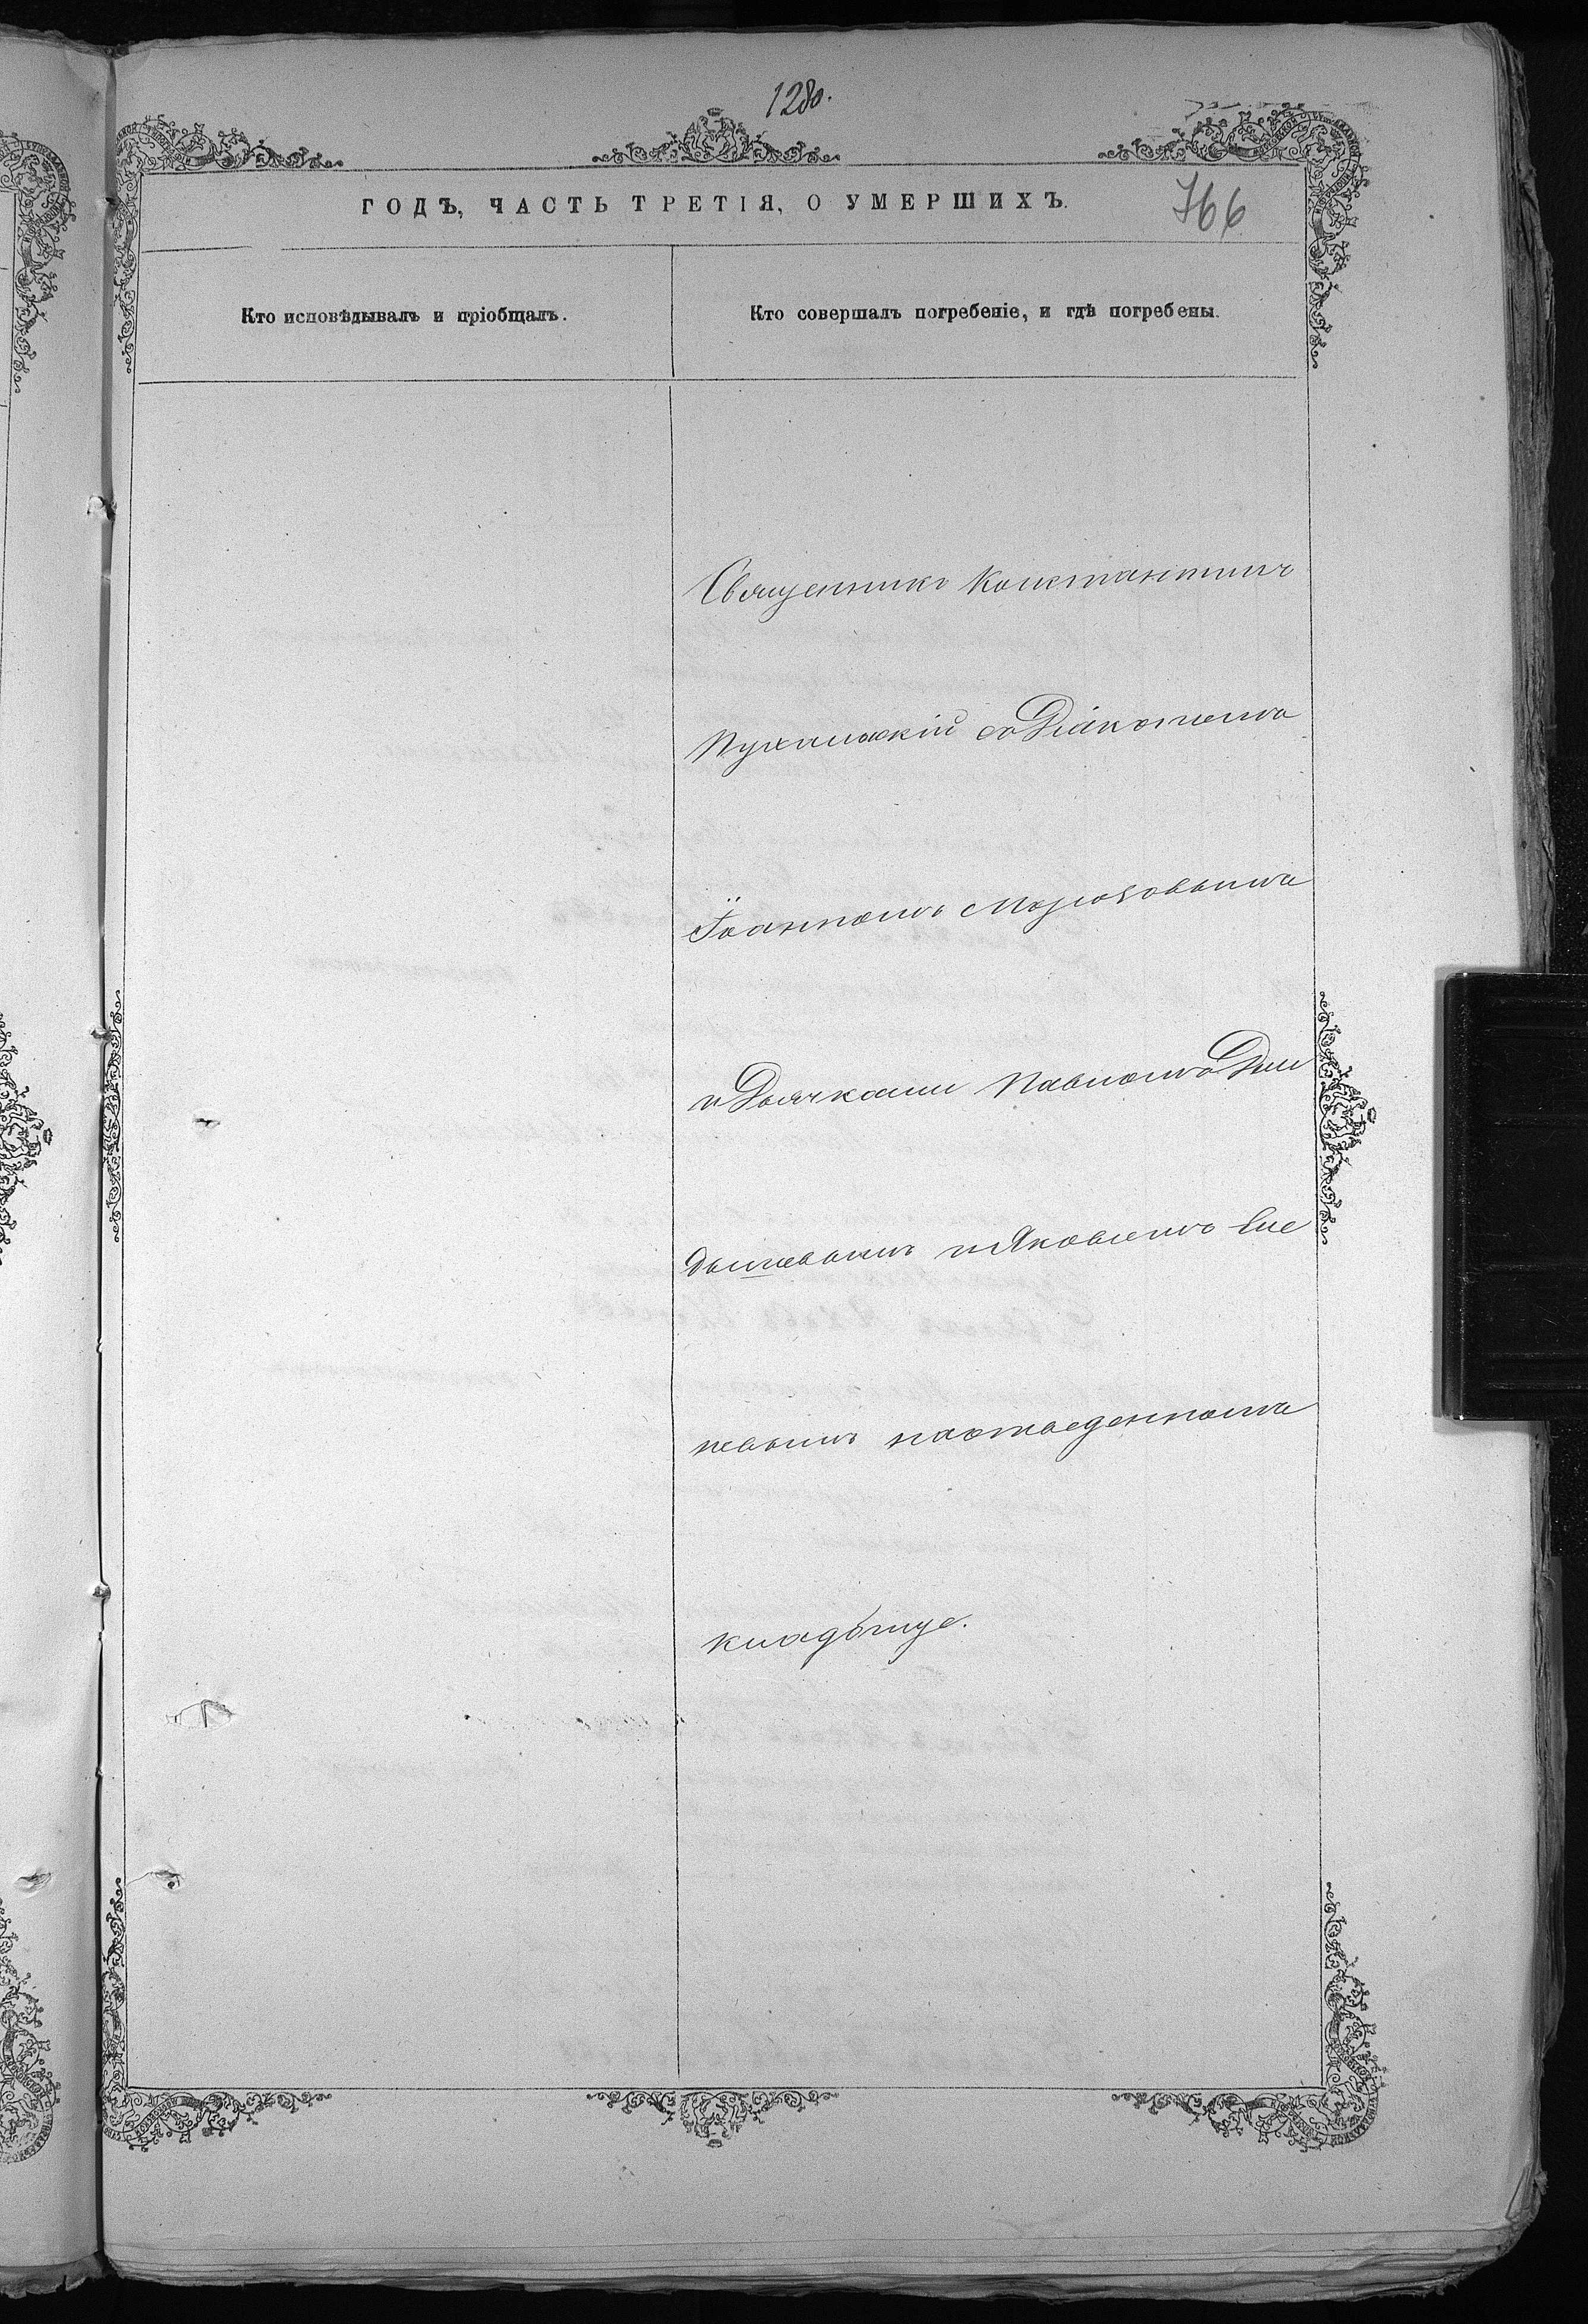 1280.
ГОДЪ, ЧАСТЬ ТРЕТІЯ, О УМЕРШИХЪ.
766
Кто исповѣдывалъ и пріобщалъ.
Кто совершалъ погребеніе, и гдѣ погребены.
Священникъ Константинъ
съ Діакономъ
Іоанномъ
и Дьячками Павломъ
и Яковлемъ
наотведенномъ
кладбище.